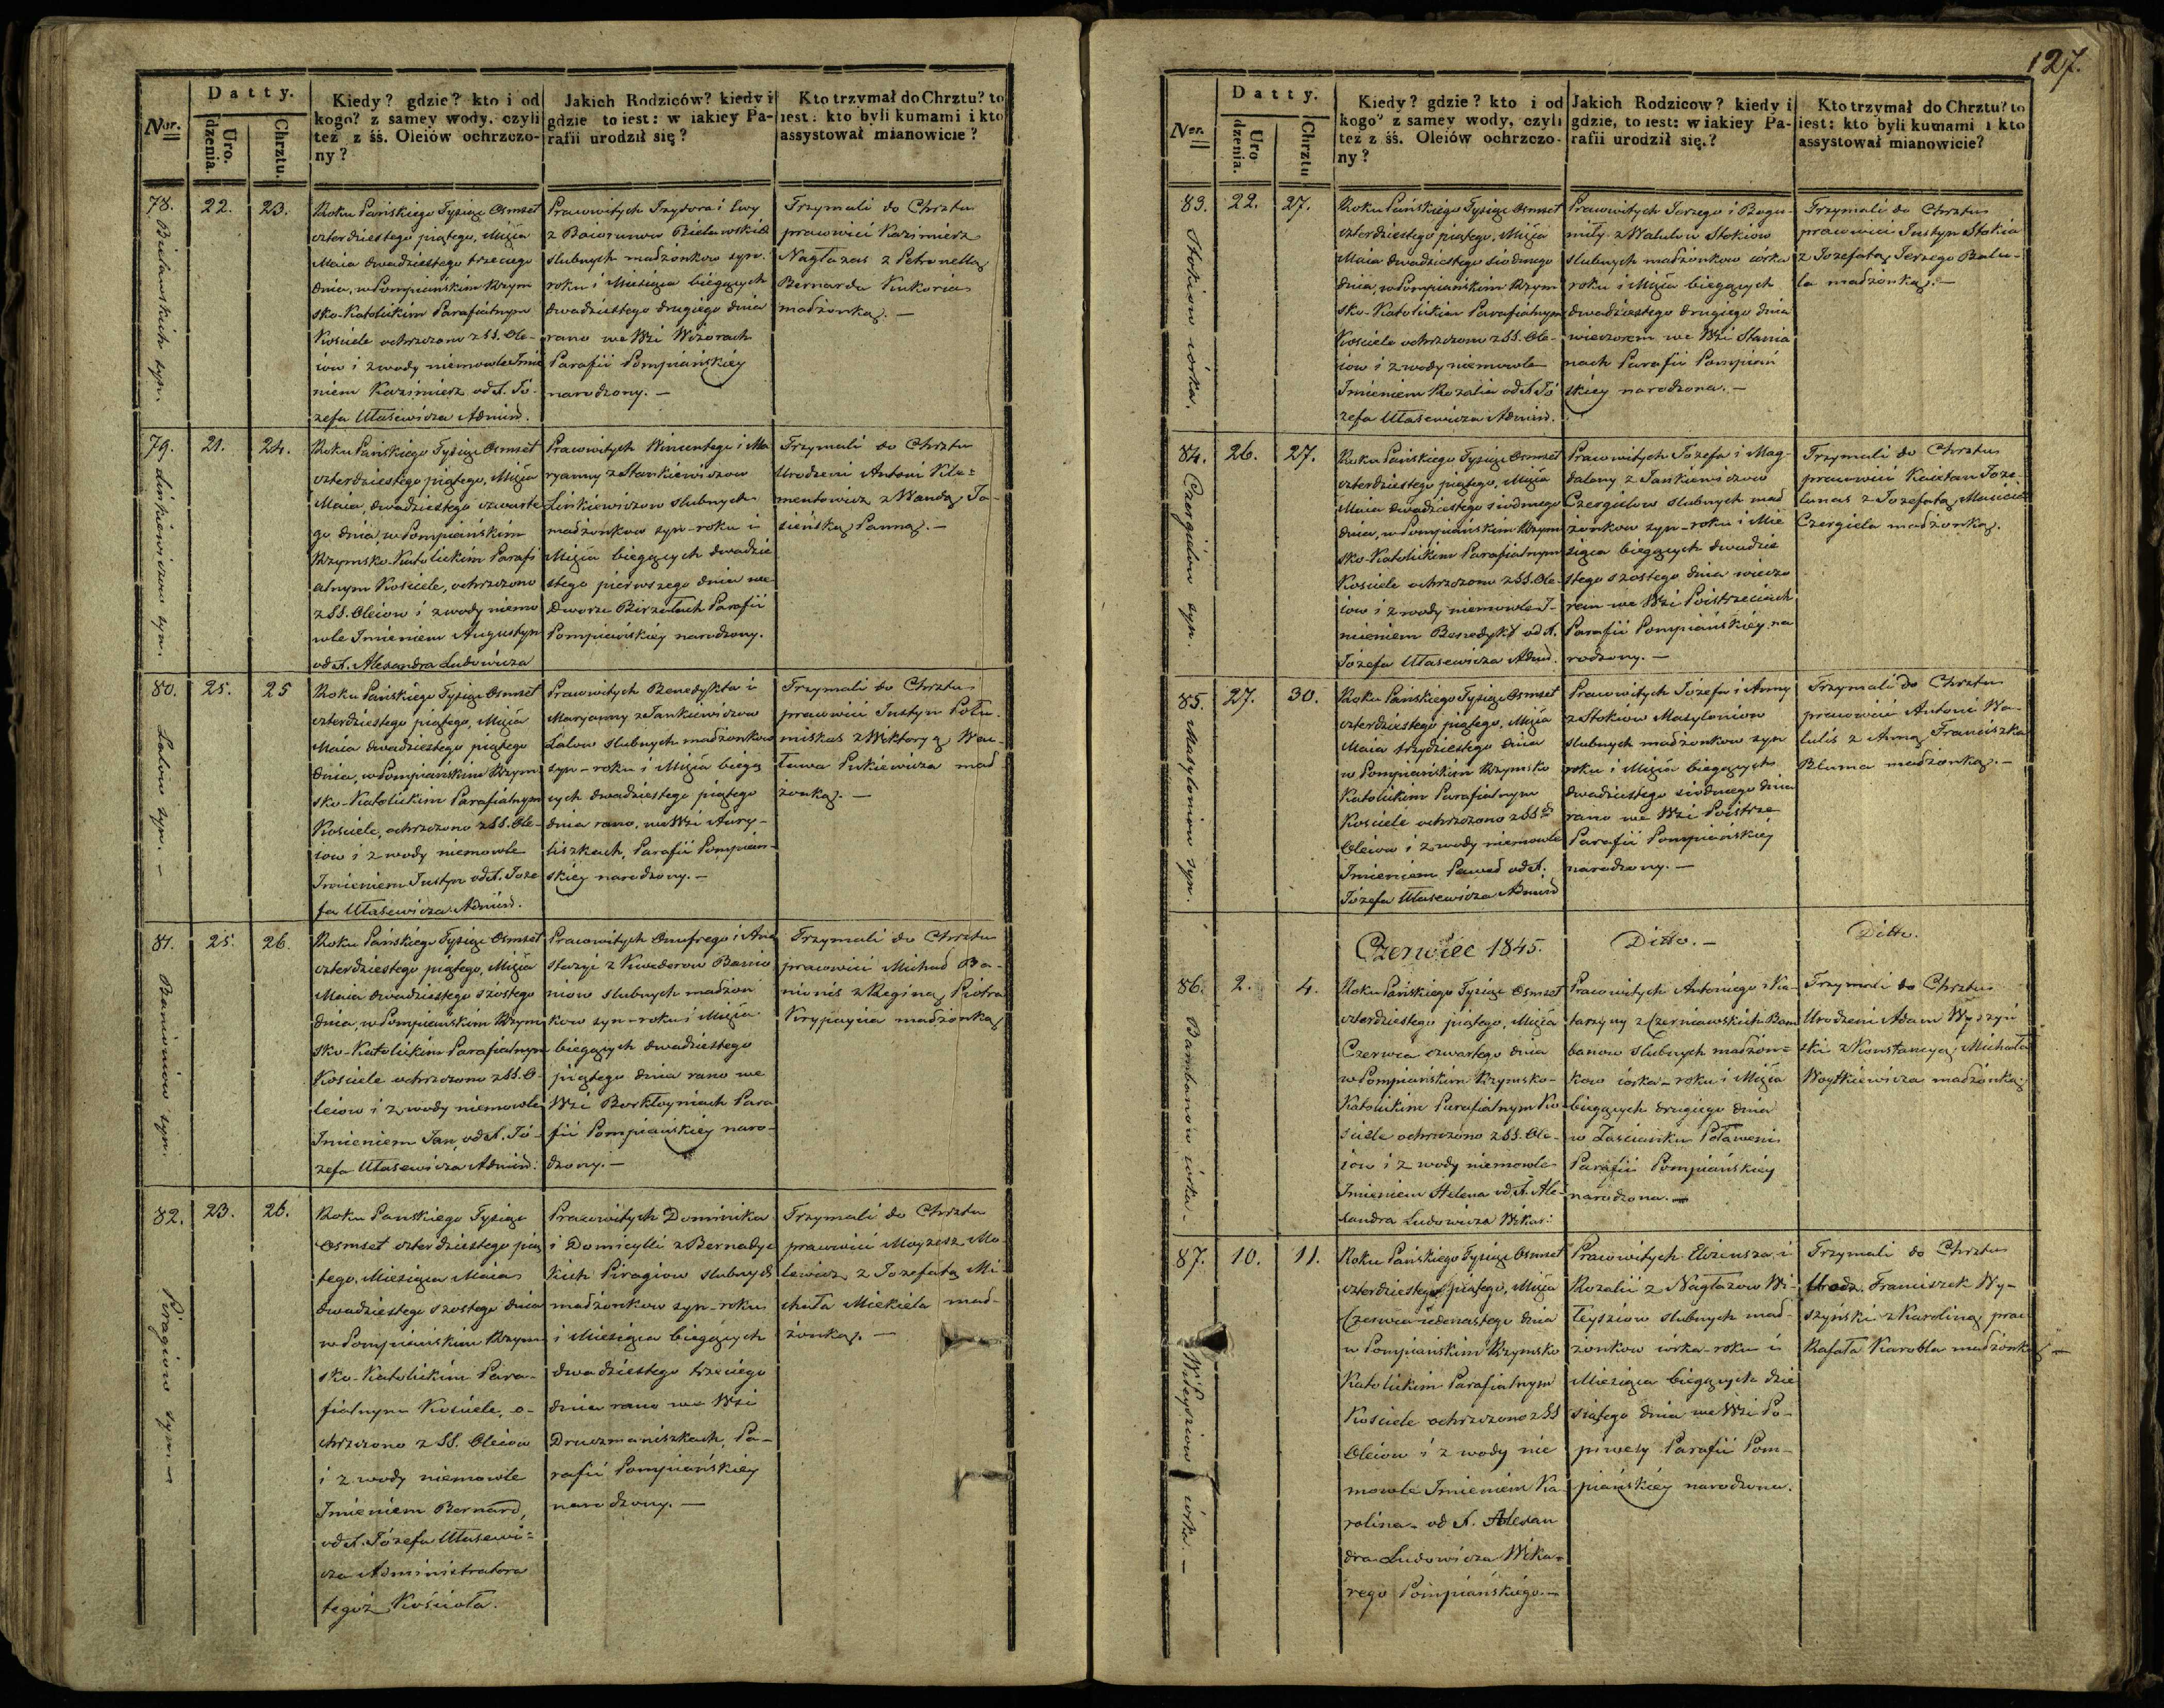 127.
Nor.
Datty.
Uro.
dzenia.
Chrztu.
Kiedy? gdzie? kto i od
kogo? z samey wody, czyli
tez z śś. Oleiów ochrzczo-
ny?
Jakich Rodziców? kiedy i
gdzie to iest: w iakiey Pa-
rafii urodził się?
Kto trzymał do Chrztu? to
iest: kto byli kumami i kto
assystował mianowicie?
78.
Bielawskich syn.
22.
23.
Roku Pańskiego Tysiąc Osmset
czterdziestego piątego, Mięsia
Maia dwadziestego trzeciego
dnia, w Pompiańskim Rzym
sko-Katolickim Parafialnym
Kościele ochrzczono z SS. Ole-
iow i z wody niemowle Imie
niem Kazimierz od X. Jó-
zefa Ułasewicza Admin.
Pracowitych Izydora i Ewy
z Boiorunow Bielawskich
slubnych małżonkow syn.
roku i Miesiąca bieżących
dwadziestego drugiego dnia
rano we Wsi Wizorach
Parafii Pompiańskiey
narodzony. —
Trzymali do Chrztu
pracowici Kazimierz
Nagłazas z Petronellą
Bernarda Kukoria
małżonką. —
79.
Linkiewiczow syn.
21.
24.
Roku Pańskiego Tysiąc Osmset
czterdziestego piątego, Mięsia
Maia, dwadziestego czwarte
go dnia, w Pompiańskim
Rzymsko-Katolickim Parafi
alnym Kościele, ochrzczono
z SS. Oleiow i z wody niemo
wle Imieniem Augustyn
od X. Alexandra Ludowicza
Pracowitych Wincentego i Ma
ryanny z Stankiewiczow
Linkiewiczow slubnych
małżonkow syn - roku i
Mięsia bieżących dwadzie
stego pierwszego dnia we
Dworze Birzałach Parafii
Pompiańskiey narodzony.
Trzymali do Chrztu
Urodzeni Antoni Kle=
mentowicz z Wandą Ja-
sieńską Panną. —
80.
Lalow syn. —
25.
25
Roku Pańskiego Tysiąc Osmset
czterdziestego piątego, Mięsia
Maia dwadziestego piątego
dnia, w Pompiańskim Rzym
sko-Katolickim Parafialnym
Kościele, ochrzczono z SS. Ole-
iow i z wody niemowle
Imieniem Justyn od X. Joze
fa Ułasewicza Admin.
Pracowitych Benedykta i
Maryanny z Jankiewiczow
Lalow slubnych małżonkow
syn - roku i Mięsia bieżą
cych dwadziestego piątego
dnia rano, we Wsi Aury-
liszkach, Parafii Pompiań-
skiey narodzony. —
Trzymali do Chrztu
pracowici Justyn Połu
miskas z Wiktoryą Wa-
ława Pukiewicza mał
żonką. —
81.
Banioniow syn.
25.
26.
Roku Pańskiego Tysiąc Osmset
czterdziestego piątego, Mięsia
Maia dwadziestego szostego
dnia, w Pompiańskim Rzym
sko-Katolickim Parafialnym
Kościele ochrzczono z SS. O-
leiow i z wody niemowle
Imieniem Jan, od X. Jó-
zefa Ułasewicza Admin.
Pracowitych Onufrego i Ana
stazyi z Kwederow Banio
niow slubnych małżon
kow syn - roku i Mięsia
bieżących dwadziestego
piątego dnia rano we
Wsi Borkłoyniach Para
fii Pompiańskiey naro-
dzony. —
Trzymali do Chrztu
pracowici Michał Ba-
nionis z Reginą Piotra
Krypaycia małżonką
82.
Piragiow syn. —
23.
26.
Roku Pańskiego Tysiąc
Osmset czterdziestego pią
tego, Miesiąca Maia
dwadziestego szostego dnia
w Pompiańskim Rzym
sko-Katolickim Para-
fialnym Kościele, o-
chrzczono z SS. Oleiow
i z wody niemowle
Imieniem Bernard,
od X. Józefa Ułasewi=
cza Administratora
tegoż Kościoła.
Pracowitych Dominika
i Domicylli z Bernadyc
kich Piragiow slubnych
małżonkow syn - roku
i Miesiąca bieżących
dwadziestego trzeciego
dnia rano we Wsi
Druczmaniszkach, Pa-
rafii Pompiańskiey
narodzony. —
Trzymali do Chrztu
pracowici Moyzesz Mo
lewicz z Jozefatą Mi
chała Mickiela mał-
żonką. —
Nor.
Datty.
Uro
dzenia.
Chrztu
Kiedy? gdzie? kto i od
kogo? z samey wody, czyli
tez z śś. Oleiów ochrzczo-
ny?
Jakich Rodzicow? kiedy i
gdzie, to iest: w iakiey Pa-
rafii urodził się.?
Kto trzymał do Chrztu? to
iest: kto byli kumami i kto
assystował mianowicie?
83.
Stokiow córka.
22.
27.
Roku Pańskiego Tysiąc Osmset
czterdziestego piątego, Mięsia
Maia dwadziestego siodmego
dnia, w Pompiańskim Rzym
sko-Katolickim Parafialnym
Kościele ochrzczono z SS. Ole-
iow i z wody niemowle
Imieniem Rozalia od X. Jó
zefa Ułasewicza Admin.
Pracowitych Jerzego i Bogu
miły z Walulow Stokiow
slubnych małżonkow córka
roku i Mięsia bieżących
dwadziestego drugiego dnia
wieczorem we Wsi Stania
nach Parafii Pompiań
skiey narodzona. —
Trzymali do Chrztu
pracowici Justyn Stokia
z Jozefatą Jerzego Balu-
la małżonką. —
84.
Czergielow syn.
26.
27.
Roku Pańskiego Tysiąc Osmset
czterdziestego piątego, Mięsia
Maia dwadziestego siodmego
dnia, w Pompiańskim Rzym
sko-Katolickim Parafialnym
Kościele ochrzczono z SS. Ole-
iow i z wody niemowle I-
mieniem Benedykt od X.
Józefa Ułasewicza Admin.
Pracowitych Józefa i Mag-
daleny z Jankiewiczow
Czergielow slubnych mał
żonkow syn - roku i Mie
siąca bieżących dwadzie
stego szostego dnia wieczo
rem we Wsi Poistrzeciach
Parafii Pompiańskiey, na
rodzony. —
Trzymali do Chrztu
pracowici Kaietan Joze
lunas z Jozefatą Macieia
Czergiela małżonką.
85.
Masyloniow syn.
27.
30.
Roku Pańskiego Tysiąc Osmset
czterdziestego piątego, Mięsia
Maia trzydziestego dnia
w Pompiańskim Rzymsko
Katolickim Parafialnym
Kościele ochrzczono z SS.
Oleiow i z wody niemowle
Imieniem Paweł od X.
Józefa Ułasewicza Admin
Pracowitych Józefa i Anny
z Stokiow Masyloniow
slubnych małżonkow syn
roku i Mięsia bieżących
dwadziestego siodmego dnia
rano we Wsi Poistrze
Parafii Pompiańskiey
narodzony. —
Trzymali do Chrztu
pracowici Antoni Wa-
lulis z Anną Franciszka
Bluma małżonką. —
Czerwiec 1845.
Ditto. —
Ditto.
86.
Bambanow córka.
2.
4.
Roku Pańskiego Tysiąc Osmset
czterdziestego piątego, Mięsia
Czerwca czwartego dnia
w Pompiańskim Rzymsko-
Katolickim Parafialnym Ko-
ściele ochrzczono z SS. Ole-
iow i z wody niemowle
Imieniem Helena od X. Ale-
xandra Ludowicza Wikar:
Pracowitych Antoniego i Ka-
tarzyny z Czerniawskich Bam
banow slubnych małżon=
kow córka - roku i Mięsia
bieżących drugiego dnia
w Zaścianku Poławeni
Parafii Pompiańskiey
narodzona. —
Trzymali do Chrztu
Urodzeni Adam Wyszyń
ski z Konstancyą Michała
Woytkiewicza małżonką.
87.
Witeysziow córka. —
10.
11.
Roku Pańskiego Tysiąc Osmset
czterdziestego piątego, Mięsia
Czerwca iedenastego dnia
w Pompiańskim Rzymsko
Katolickim Parafialnym
Kościele ochrzczono z SS
Oleiow i z wody nie
mowle Imieniem Ka-
rolina - od X. Alexan
dra Ludowicza Wika-
rego Pompiańskiego. —
Pracowitych Elzeusza i
Rozalii z Nagłazow Wi-
teysziow slubnych mał-
żonkow córka - roku i
Miesiąca bieżących dzie
siątego dnia we Wsi Po-
piwesy Parafii Pom-
piańskiey narodzona.
Trzymali do Chrztu
Urodz. Franciszek Wy-
szyński z Karoliną prac
Rafała Karobla małżonką —